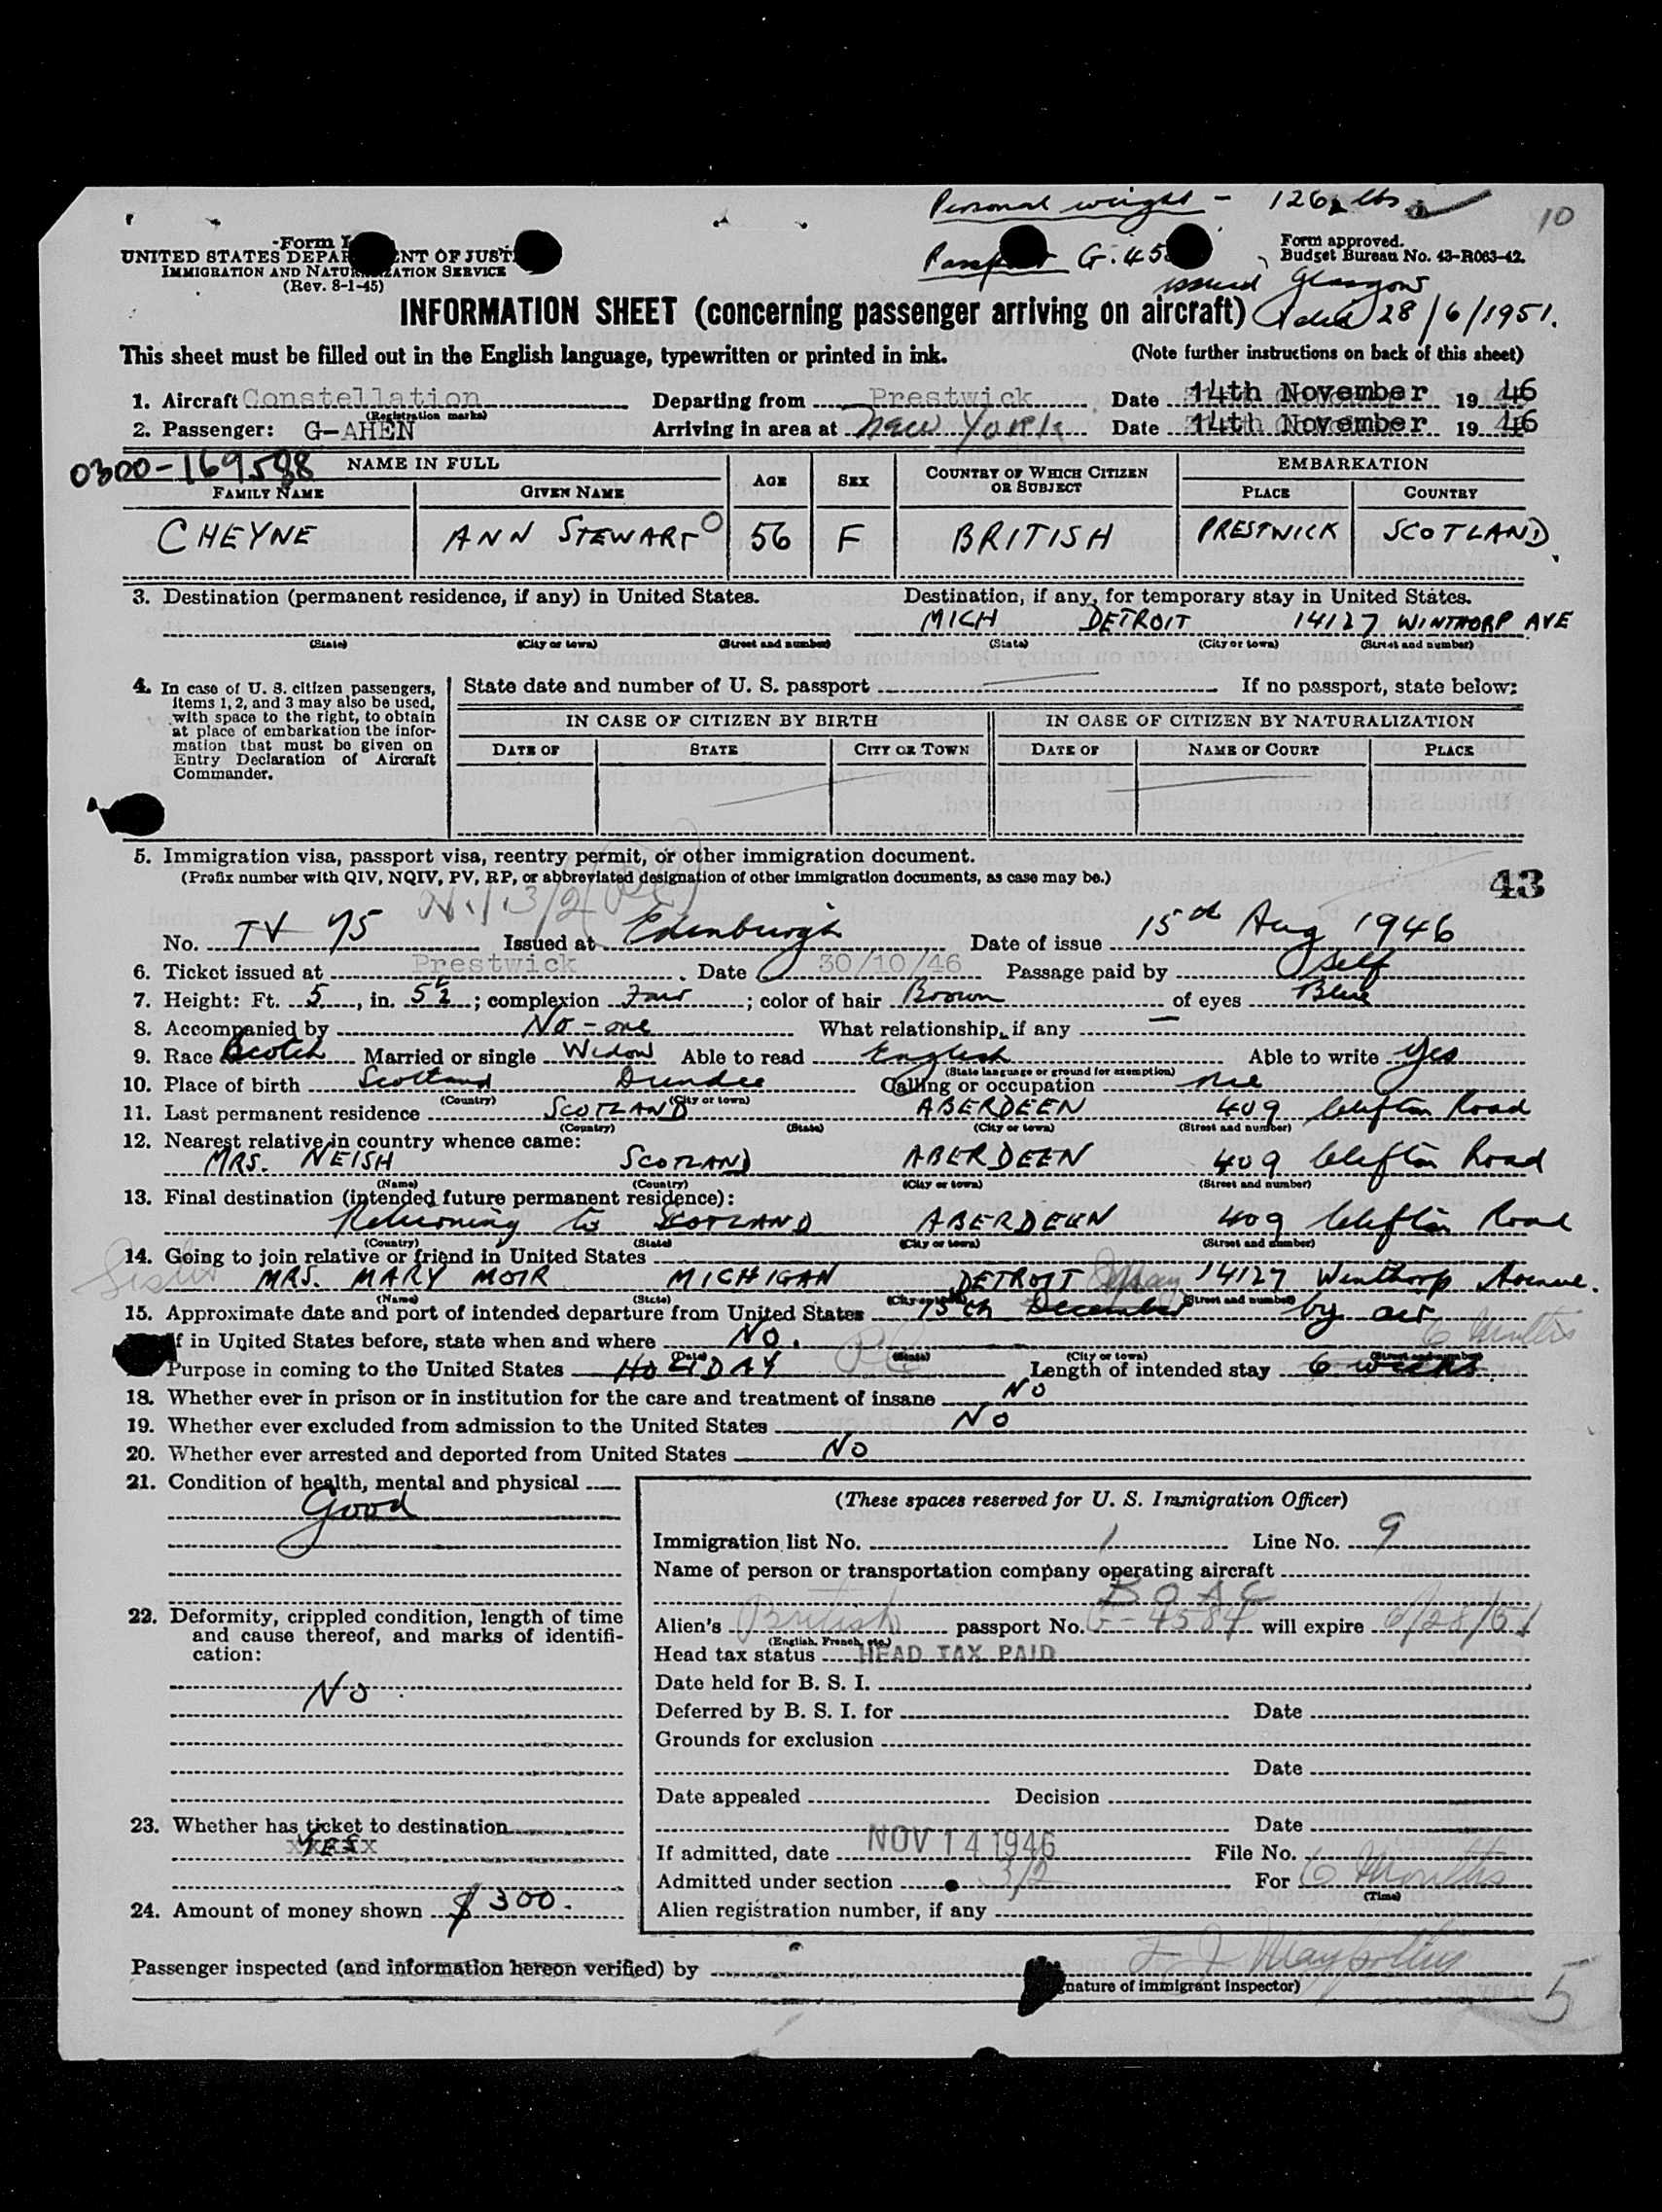 Personal weight - 126 lbs
10
Form I
UNITED STATES DEPAR ENT OF JUST
IMMIGRATION AND NATU ZATION SERVICE
(Rev. 8-1-45)
G. 45
Form approved.
Budget Bureau No. 43-R063-42.
issued Glasgow
28/6/1951.
INFORMATION SHEET (concerning passenger arriving on aircraft)
This sheet must be filled out in the English language, typewritten or printed in ink.
(Note further instructions on back of this sheet)
1. Aircraft Constellation Departing from Prestwick Date 14th November 1946
(Registration marks)
2. Passenger: G-AHEN Arriving in area at New York Date 14th November 1946
0300-169588
NAME IN FULL
FAMILY NAME GIVEN NAME AGE SEX COUNTRY OF WHICH CITIZEN OR SUBJECT EMBARKATION PLACE COUNTRY
CHEYNE ANN STEWART 56 F BRITISH PRESTWICK SCOTLAND
3. Destination (permanent residence, if any) in United States. Destination, if any, for temporary stay in United States.
MICH DETROIT 14127 WINTHORP AVE
(State) (City or town) (Street and number) (State) (City or town) (Street and number)
4. In case of U. S. citizen passengers, items 1, 2, and 3 may also be used, with space to the right, to obtain at place of embarkation the information that must be given on Entry Declaration of Aircraft Commander.
State date and number of U. S. passport If no passport, state below:
IN CASE OF CITIZEN BY BIRTH IN CASE OF CITIZEN BY NATURALIZATION
DATE OF STATE CITY OR TOWN DATE OF NAME OF COURT PLACE
5. Immigration visa, passport visa, reentry permit, or other immigration document.
(Prefix number with QIV, NQIV, PV, RP, or abbreviated designation of other immigration documents, as case may be.)
43
No. TV 75 Issued at Edinburgh Date of issue 15th Aug 1946
6. Ticket issued at Prestwick Date 30/10/46 Passage paid by Self
7. Height: Ft. 5, in. 5½; complexion Fair; color of hair Brown of eyes Blue
8. Accompanied by No-one What relationship, if any —
9. Race Scotch Married or single Widow Able to read English Able to write Yes
(State language or ground for exemption)
10. Place of birth Scotland Dundee Calling or occupation
(Country) (City or town)
11. Last permanent residence SCOTLAND ABERDEEN 409 Clifton Road
(Country) (State) (City or town) (Street and number)
12. Nearest relative in country whence came:
MRS. NEISH SCOTLAND ABERDEEN 409 Clifton Road
(Name) (Country) (City or town) (Street and number)
13. Final destination (intended future permanent residence):
Returning to SCOTLAND ABERDEEN 409 Clifton Road
(Country) (State) (City or town) (Street and number)
14. Going to join relative or friend in United States
Sister MRS. MARY MOIR MICHIGAN DETROIT 14127 Winthorp Avenue.
(Name) (State) (City or town) (Street and number)
15. Approximate date and port of intended departure from United States 15th December by air
f in United States before, state when and where No. 6 Months
(Date) (State) (City or town) (Street and number)
Purpose in coming to the United States HOLIDAY Length of intended stay 6 weeks
18. Whether ever in prison or in institution for the care and treatment of insane No
19. Whether ever excluded from admission to the United States No
20. Whether ever arrested and deported from United States No
21. Condition of health, mental and physical
Good
22. Deformity, crippled condition, length of time and cause thereof, and marks of identification:
No
23. Whether has ticket to destination
YES
24. Amount of money shown $300.
(These spaces reserved for U. S. Immigration Officer)
Immigration list No. 1 Line No. 9
Name of person or transportation company operating aircraft
B O A C
Alien's British passport No. G-4584 will expire 6/28/51
(English, French, etc.)
Head tax status HEAD TAX PAID
Date held for B. S. I.
Deferred by B. S. I. for Date
Grounds for exclusion
Date
Date appealed Decision
Date
If admitted, date NOV 14 1946 File No.
Admitted under section 3/2 For 6 Months
(Time)
Alien registration number, if any
Passenger inspected (and information hereon verified) by
nature of immigrant inspector)
5